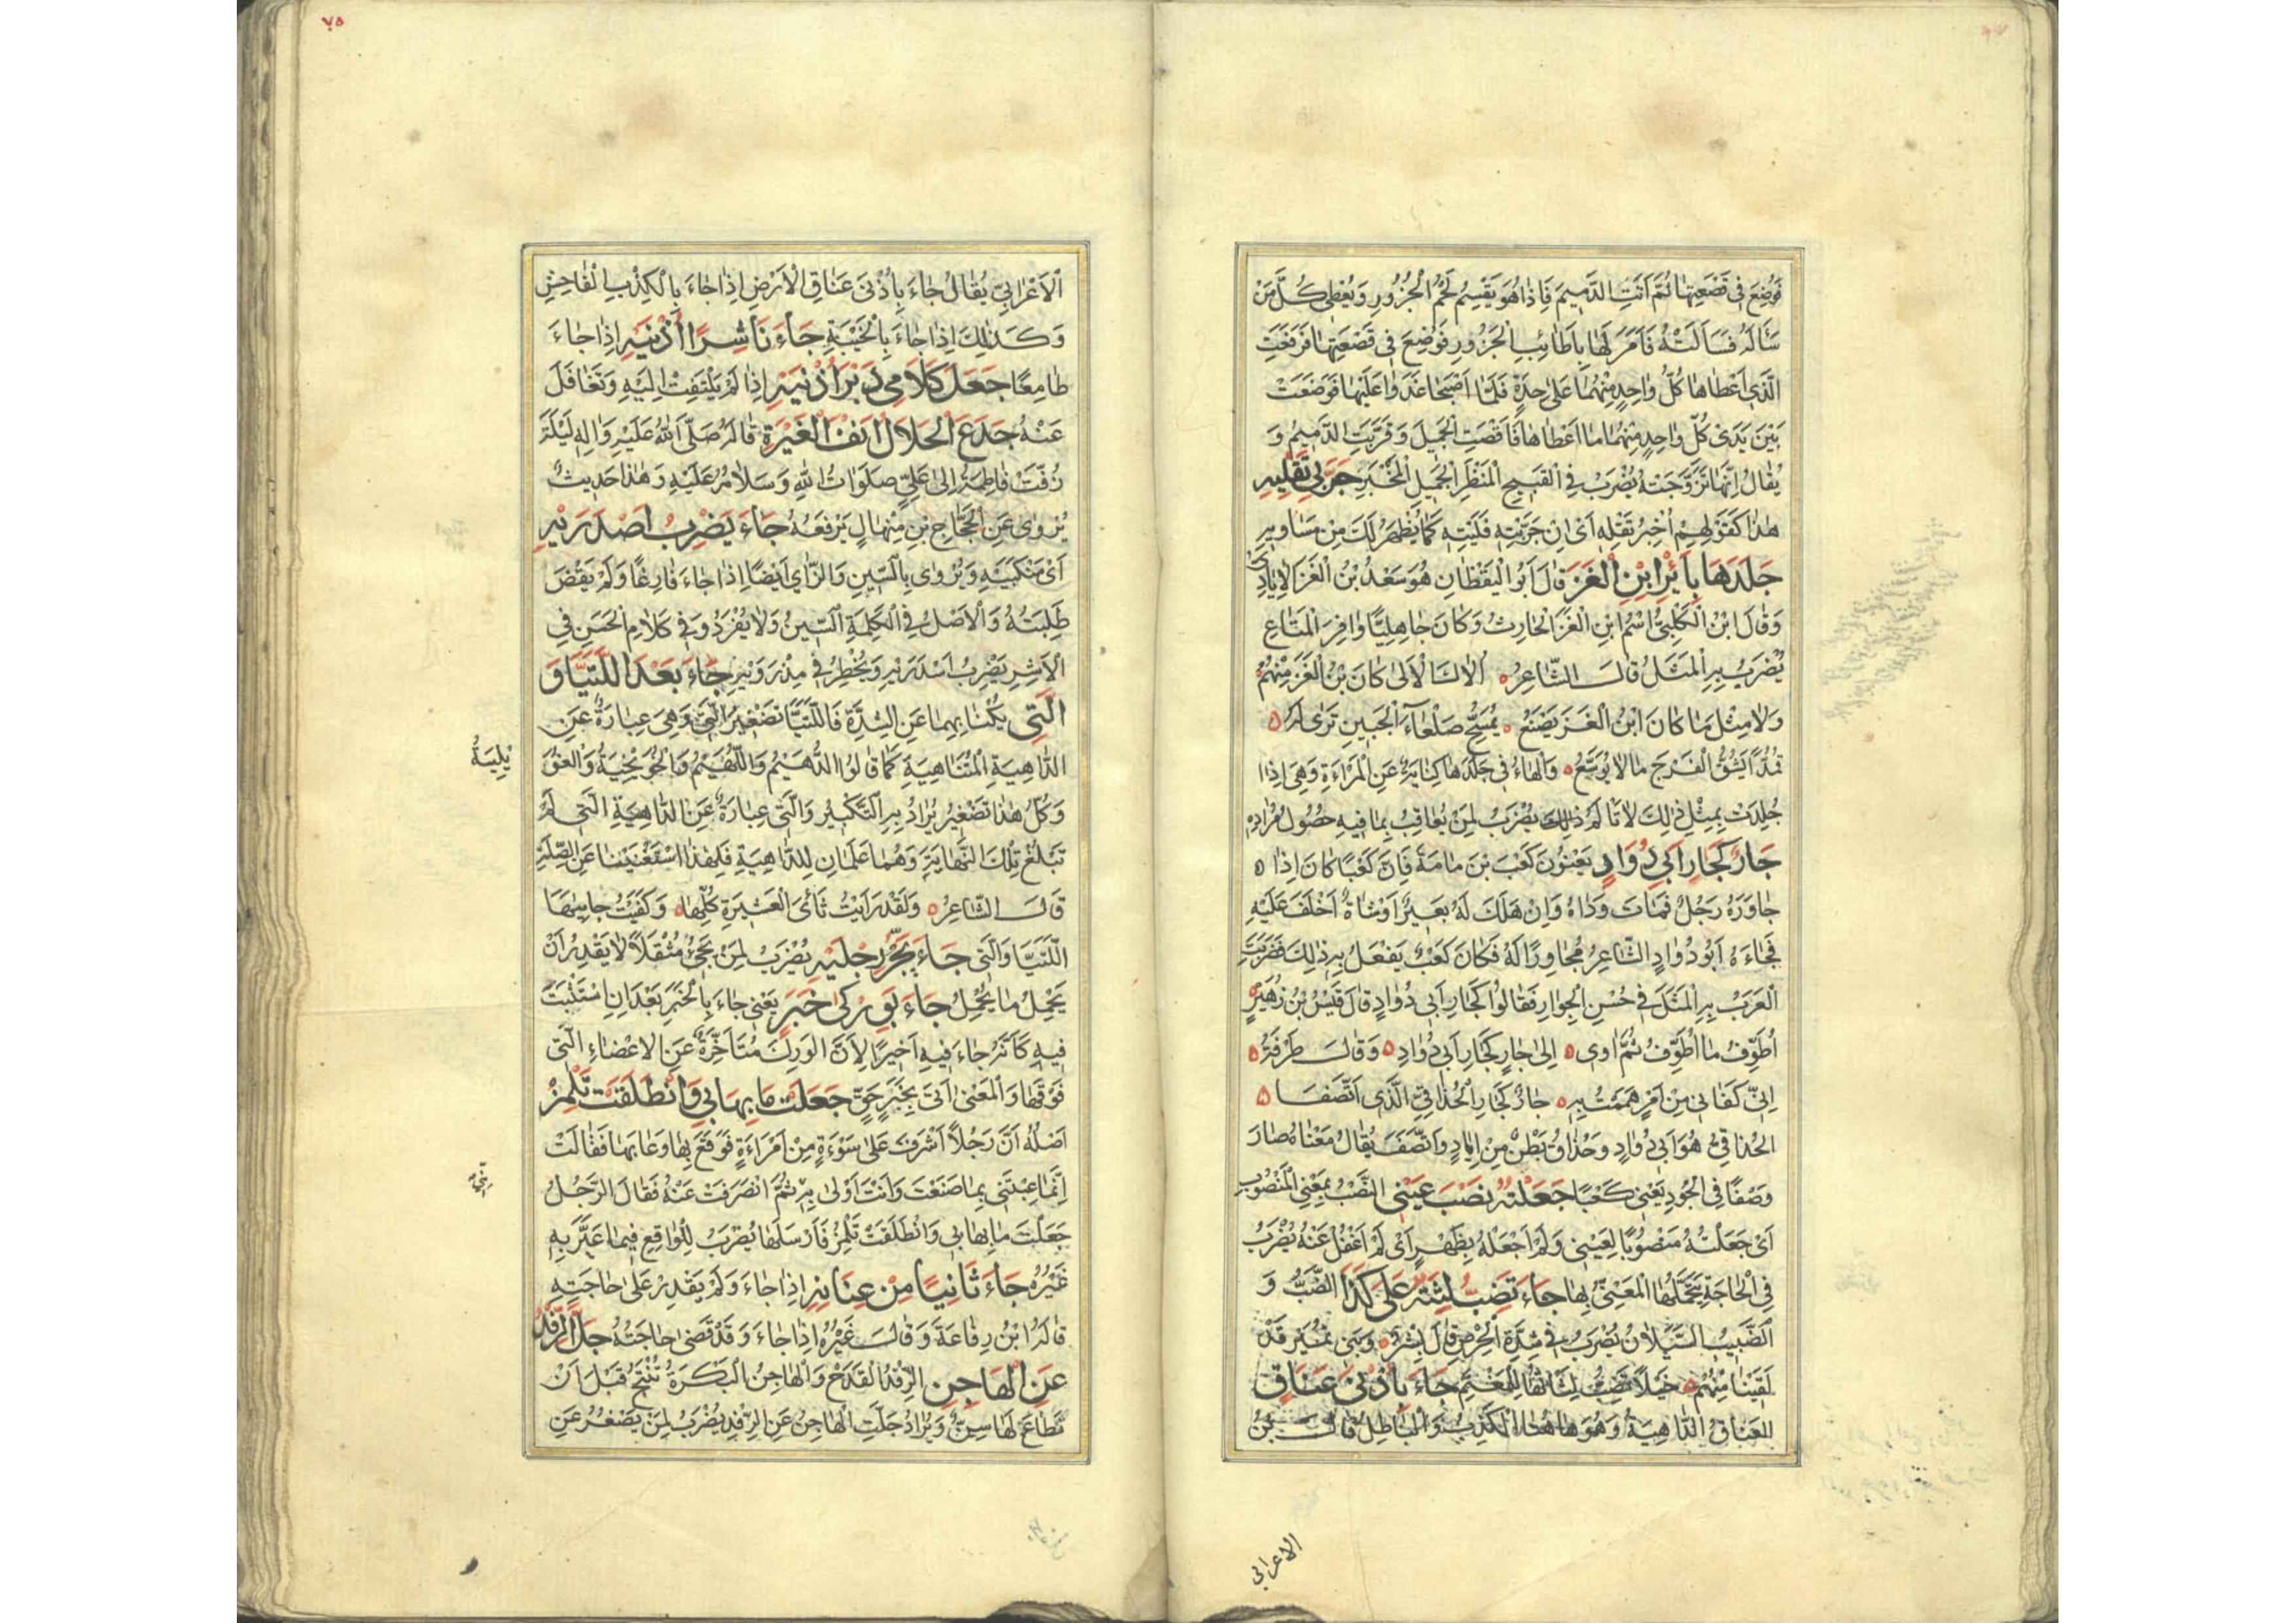 فَوُضِعَ فِي قَصْعَتِهَا ثُمَّ اَتَتِ الدَّمِيمَ فَاِذَا هُوَ يَقْسِمُ لَحْمَ الْجَزُورِ وَيُعْطِي كُلَّ مَنْ
سَأَلَهُ فَسَأَلَتْهُ فَأَمَرَ لَهَا بِأَطَائِبِ الْجَزُورِ فَوُضِعَ فِي قَصْعَتِهَا فَرَفَعَتِ
الَّذِي أَعْطَاهَا كُلُّ وَاحِدٍ مِنْهُمَا عَلَى حِدَةٍ فَلَمَّا اَصْبَحَا غَدَوَا عَلَيْهَا فَوَضَعَتْ
بَيْنَ يَدَيْ كُلِّ وَاحِدٍ مِنْهُمَا مَا اَعْطَاهَا فَاَقْصَتِ الْجَمِيلَ وَقَرَّبَتِ الدَّمِيمَ وَ
يُقَالُ اِنَّهَا تَزَوَّجَتْهُ يُضْرَبُ فِي الْقَبِيحِ الْمَنْظَرِ الْجَمِيلِ الْمَخْبَرِ جَرِّبِي تَقْلِيهِ
هٰذَا كَقَوْلِهِمْ اُخْبُرْ تَقْلِهِ اَيْ اِنْ جَرَّبْتِهِ قَلَيْتِهِ كَمَا يَظْهَرُ لَكِ مِنْ مَسَاوِيهِ
جَلَدَهَا بِاَيْرِ ابْنِ الْغَزَ قَالَ اَبُو الْيَقْظَانِ هُوَ سَعْدُ بْنُ الْغَزَ الْاِيَادِي
وَقَالَ ابْنُ الْكَلْبِيِّ اسْمُ ابْنِ الْغَزَ الْحَارِثُ وَكَانَ جَاهِلِيًّا وَافِرَ الْمَتَاعِ
يُضْرَبُ بِهِ الْمَثَلُ قَالَ الشَّاعِرُ ه اُلَاكَ الْاُلَى كَانَ بْنُ الْغَزَ مِنْهُمُ
وَلَا مِثْلَ مَا كَانَ ابْنُ الْغَزَ يَصْنَعُ ه يُمَسِّحُ صَلْعَاءَ الْجَبِينِ تَرَى لَهُ ه
تَمُدًّا يَشُقُّ الْفَرْجَ مَا لَا يُوَسَّعُ ه وَالْهَاءُ فِي جَلَدَهَا كِنَايَةٌ عَنِ الْمَرْاَةِ وَهِيَ اِذَا
جُلِدَتْ بِمِثْلِ ذٰلِكَ لَا تَاْلَمُ ذٰلِكَ يُضْرَبُ لِمَنْ يُعَاقِبُ بِمَا فِيهِ حُصُولُ مُرَادِهِ
جَارٌ كَجَارِ اَبِي دُوَادٍ يَعْنُونَ كَعْبَ بْنَ مَامَةَ فَاِنَّ كَعْبًا كَانَ اِذَا ه
جَاوَرَهُ رَجُلٌ فَمَاتَ وَدَاهُ وَاِنْ هَلَكَ لَهُ بَعِيرٌ اَوْ شَاةٌ اَخْلَفَ عَلَيْهِ
فَجَاءَهُ اَبُو دُوَادٍ الشَّاعِرُ مُجَاوِرًا لَهُ فَكَانَ كَعْبٌ يَفْعَلُ بِهِ ذٰلِكَ فَضَرَبَتِ
الْعَرَبُ بِهِ الْمَثَلَ فِي حُسْنِ الْجِوَارِ فَقَالُوا كَجَارِ اَبِي دُوَادٍ قَالَ قَيْسُ بْنُ زُهَيْرٍ ه
اُطَوِّفُ مَا اُطَوِّفُ ثُمَّ اٰوِي ه اِلَى جَارٍ كَجَارِ اَبِي دُوَادِ ه وَقَالَ طَرَفَةُ ه
اِنِّي كَفَانِي مِنْ اَمْرٍ هَمَمْتُ بِهِ ه جَارٌ كَجَارِ الْحُذَاقِيِّ الَّذِي اتَّصَفَا ه
الْحُذَاقِيُّ هُوَ اَبِي دُوَادٍ وَحُذَاقُ بَطْنٌ مِنْ اِيَادٍ وَاتَّصَفَ يُقَالُ مَعْنَاهُ صَارَ
وَصْفًا فِي الْجُودِ يَعْنِي كَعْبًا جَعَلْتُهُ نَصْبَ عَيْنِي النَّصْبُ بِمَعْنَى الْمَنْصُوبِ
اَيْ جَعَلْتُهُ مَنْصُوبًا لِعَيْنِي وَلَمْ اَجْعَلْهُ بِظَهْرٍ اَيْ لَمْ اَغْفُلْ عَنْهُ يُضْرَبُ
فِي الْحَاجَةِ يَتَحَمَّلُهَا الْمَعْنِيُّ بِهَا جَاءَ تَضِبُّ لِثَتُهُ عَلَى كَذَا الضَّبُّ وَ
الضَّبِيبُ السَّيَلَانُ يُضْرَبُ فِي شِدَّةِ الْحِرْصِ قَالَ بِشْرٌ ه وَبَنِي نُمَيْرٍ قَدْ
لَقِينَا مِنْهُمُ ه خَيْلًا تَضِبُّ لِثَاتُهَا لِلْمَغْنَمِ جَاءَ بِاُذُنَيْ عَنَاقٍ
الْعَنَاقُ الدَّاهِيَةُ وَهُوَ هٰهُنَا الْكَذِبُ وَالْبَاطِلُ قَالَ بْنُ
الاعرابي
٧٥
الْاَعْرَابِيِّ يُقَالُ جَاءَ بِاُذُنَيْ عَنَاقِ الْاَرْضِ اِذَا جَاءَ بِالْكِذْبِ الْفَاحِشِ
وَكَذٰلِكَ اِذَا جَاءَ بِالْخَيْبَةِ جَاءَ نَاشِرًا اُذُنَيْهِ اِذَا جَاءَ
طَامِعًا جَعَلَ كَلَامِي دَبْرَ اُذُنَيْهِ اِذَا لَمْ يَلْتَفِتْ اِلَيْهِ وَتَغَافَلَ
عَنْهُ جَدَعَ الْحَلَالُ اَنْفَ الْغَيْرَةِ قَالَهُ صَلَّى اللّٰهُ عَلَيْهِ وَاٰلِهِ لَيْلَةَ
زُفَّتْ فَاطِمَةُ اِلَى عَلِيٍّ صَلَوَاتُ اللّٰهِ وَسَلَامُهُ عَلَيْهِ وَهٰذَا حَدِيثٌ
يُرْوٰى عَنِ الْحَجَّاجِ بْنِ مِنْهَالٍ يَرْفَعُهُ جَاءَ يَضْرِبُ اَصْدَرَيْهِ
اَيْ مَنْكِبَيْهِ وَيُرْوٰى بِالسِّينِ وَالزَّايِ اَيْضًا اِذَا جَاءَ فَارِغًا وَلَمْ يَقْضِ
طَلِبَتَهُ وَالْاَصْلُ فِي الْكَلِمَةِ السِّينُ وَلَا يُفْرَدُ وَفِي كَلَامِ الْحَسَنِ فِي
الْاَشِرِ يَضْرِبُ اَسْدَرَيْهِ وَيَخْطِرُ فِي مِذْرَوَيْهِ جَاءَ بَعْدَ اللَّتَيَّا وَ
الَّتِي يُكْنَا بِهِمَا عَنِ الشِّدَّةِ فَاللَّتَيَّا تَصْغِيرُ الَّتِي وَهِيَ عِبَارَةٌ عَنِ
الدَّاهِيَةِ الْمُتَنَاهِيَةِ كَمَا قَالُوا الدُّهَيْمُ وَاللُّهَيْمُ وَالْخُوَيْخِيَةُ وَالْفُوَ
يْلِيَّةُ
وَكُلُّ هٰذَا تَصْغِيرٌ يُرَادُ بِهِ التَّكْبِيرُ وَالَّتِي عِبَارَةٌ عَنِ الدَّاهِيَةِ الَّتِي لَمْ
تَبْلُغْ تِلْكَ النِّهَايَةَ وَهُمَا عَلَمَانِ لِلدَّاهِيَةِ فَلِهٰذَا اسْتَغْنَيْنَا عَنِ الصِّلَةِ
قَالَ الشَّاعِرُ ه وَلَقَدْ رَاَيْتُ ثَاَى الْعَشِيرَةِ كُلِّهَا ه وَكَفَيْتُ جَانِيَهَا
اللَّتَيَّا وَالَّتِي جَاءَ يَجُرُّ رِجْلَيْهِ يُضْرَبُ لِمَنْ يَجِيءُ مُثْقَلًا لَا يَقْدِرُ اَنْ
يَحْمِلَ مَا حُمِّلَ جَاءَ بِوَرِكَيْ خَبَرٍ يَعْنِي جَاءَ بِالْخَبَرِ بَعْدَ اَنِ اسْتَثْبَتَ
فِيهِ كَاَنَّهُ جَاءَ فِيهِ اَخِيرًا لِاَنَّ الْوَرِكَ مُتَاَخِّرَةٌ عَنِ الْاَعْضَاءِ الَّتِي
فَوْقَهَا وَالْمَعْنَى اَتَى بِخَبَرٍ حَقٍّ جَعَلَتْ مَا بِهَا بِي وَانْطَلَقَتْ تَلْمِزُ
اَصْلُهُ اَنَّ رَجُلًا اَشْرَفَ عَلَى سَوْءَةٍ مِنْ اَمْرَاَةٍ فَوَقَعَ بِهَا وَعَابَهَا فَقَالَتْ
اِنَّمَا عِبْتَنِي بِمَا صَنَعْتَ وَاَنْتَ اَوْلٰى بِهِ ثُمَّ انْصَرَفَتْ عَنْهُ فَقَالَ الرَّجُلُ
جَعَلَتْ مَا بِهَا بِي وَانْطَلَقَتْ تَلْمِزُ فَاَرْسَلَهَا يُضْرَبُ لِلْوَاقِعِ فِيمَا عَيَّرَ بِهِ
غَيْرَهُ جَاءَ ثَانِيًا مِنْ عِنَانِهِ اِذَا جَاءَ وَلَمْ يَقْدِرْ عَلَى حَاجَتِهِ
قَالَهُ ابْنُ رِفَاعَةَ وَقَالَ غَيْرُهُ اِذَا جَاءَ وَقَدْ قَضَى حَاجَتَهُ جَلَّ الرِّفْدُ
عَنِ الْهَاجِنِ الرِّفْدُ الْقَدَحُ وَالْهَاجِنُ الْبَكْرَةُ تُنْتَجُ قَبْلَ اَنْ
تَطْلُعَ لَهَا سِنٌّ وَيُرَادُ جَلَّتِ الْهَاجِنُ عَنِ الرِّفْدِ يُضْرَبُ لِمَنْ يَصْغُرُ عَنِ